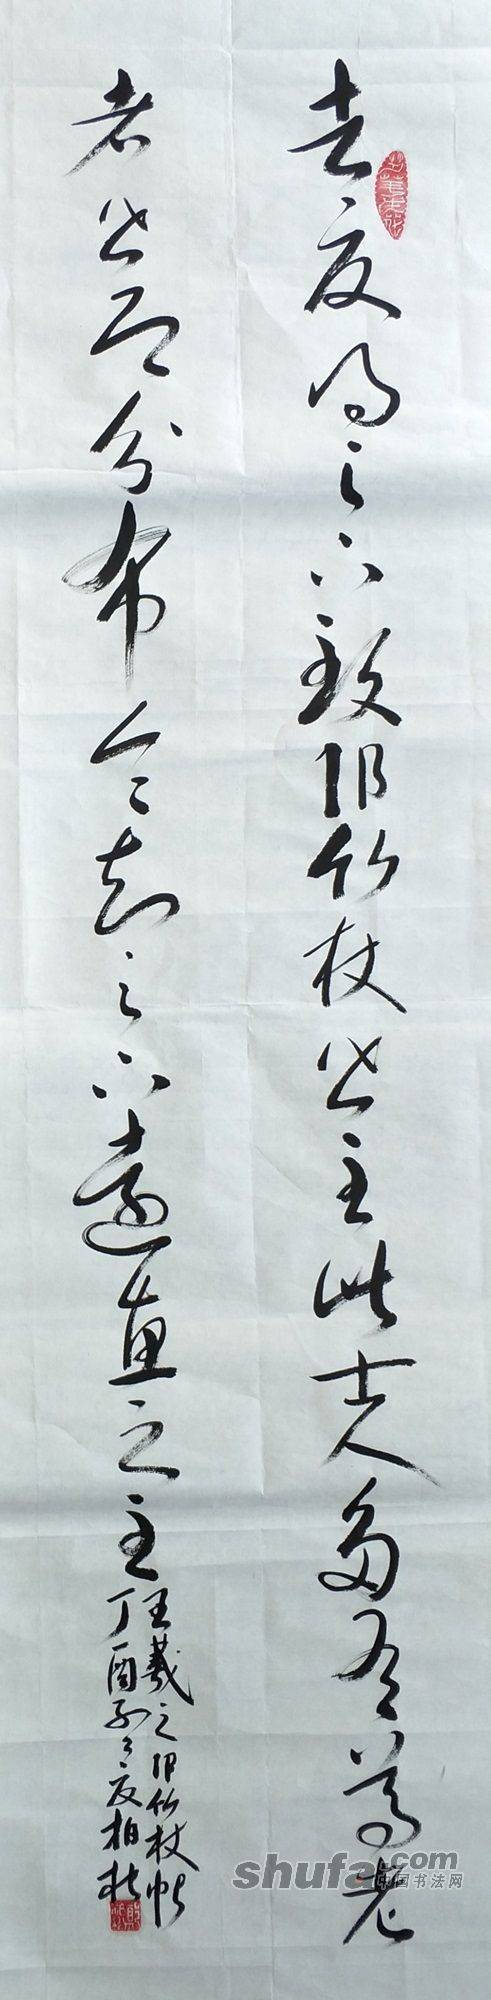 去夏得足下致邛竹杖皆至此士人多有尊老
者皆即分布令知足下遠惠之至
王羲之邛竹杖帖
丁酉
shufa.com
中国书法网